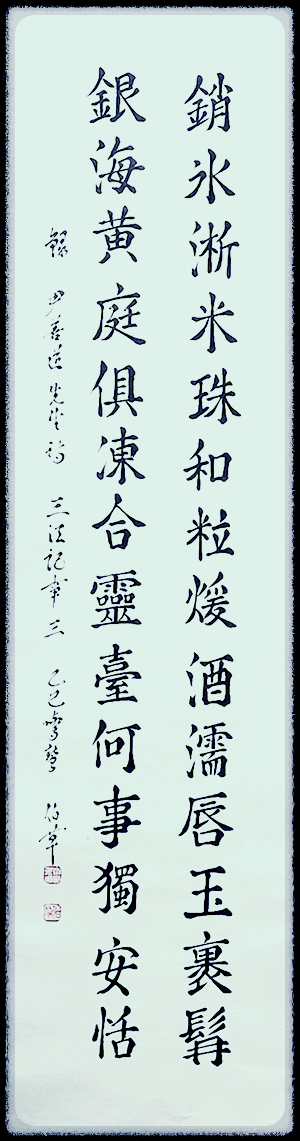 銷氷淅米珠和粒煖酒濡唇玉裹髯
銀海黄庭俱凍合靈臺何事獨安恬
錄 尹善道先生詩 三法記事三 乙巳驚蟄